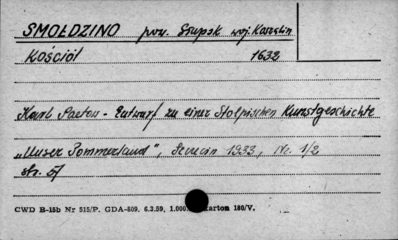 SMOŁDZINO pow. Słupsk woj. Koszalin
Kościół 1632
Karl Paetow - Entwurf zu einer Stolpischen Kunstgeschichte
"Unser Pommerland", Szczecin 1933, Nr. 1/2
str. 51
CWD B-15b Nr 515/P. GDA-809. 6.3.59. 1.000. karton 180/V.